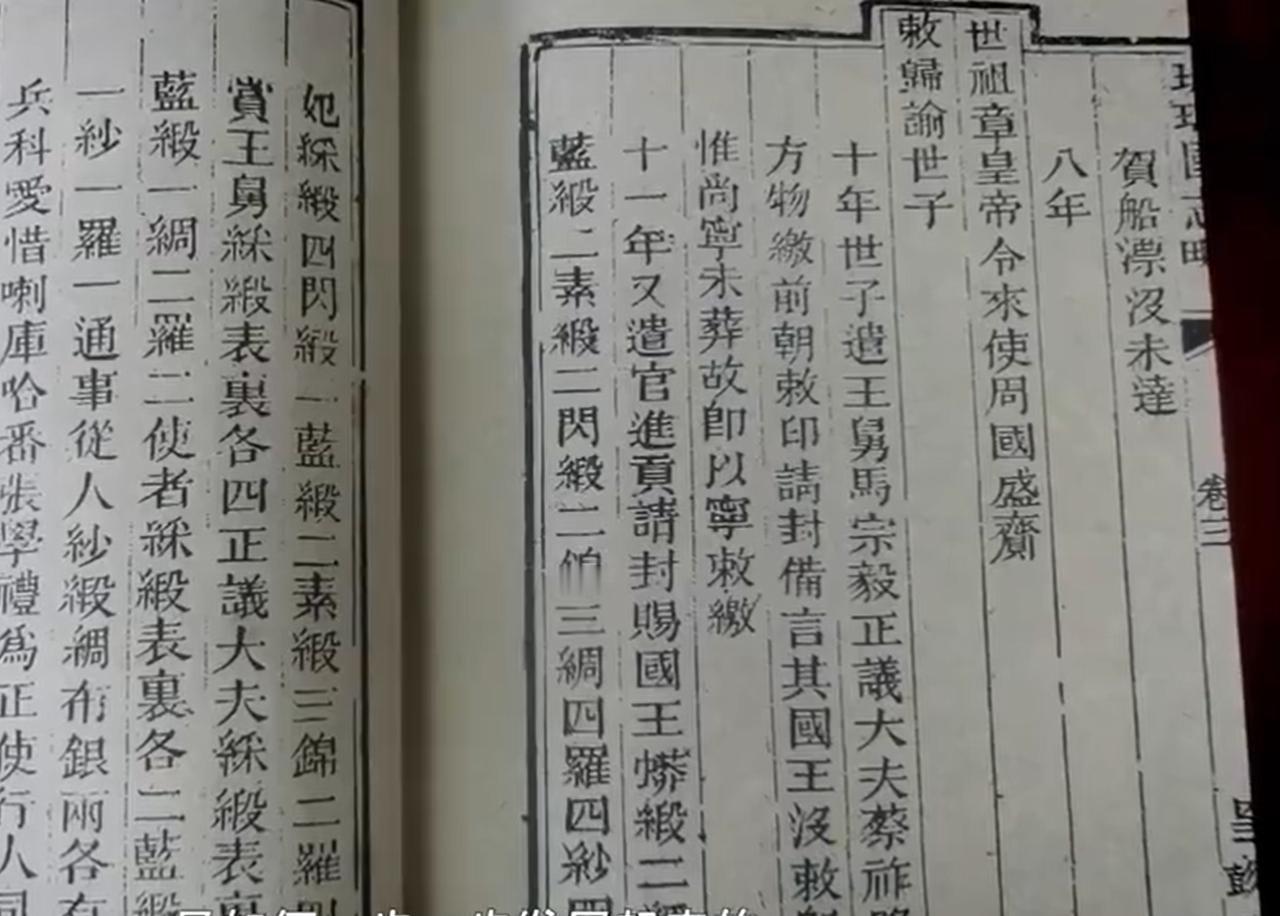 琉球國志略
卷三
賀船漂沒未達
八年
世祖章皇帝令來使周國盛齎
敕歸諭世子
十年世子遣王舅馬宗毅正議大夫蔡祚
方物繳前朝敕印請封備言其國王沒敕
惟尚寧未葬故卽以寧敕繳
十一年又遣官進貢請封賜國王蟒緞二
藍緞二素緞二閃緞二錦三綢四羅四紗四
妃綵緞四閃緞一藍緞二素緞三錦二羅四
賞王舅綵緞表裏各四正議大夫綵緞表裏
藍緞一綢二羅二使者綵緞表裏各二藍緞
一紗一羅一通事從人紗緞綢布銀兩各有
兵科愛惜喇庫哈番張學禮爲正使行人司